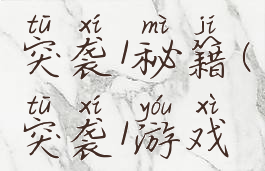 tū xí mì jí
突袭/秘籍(
tū xí yóu xì
突袭/游戏